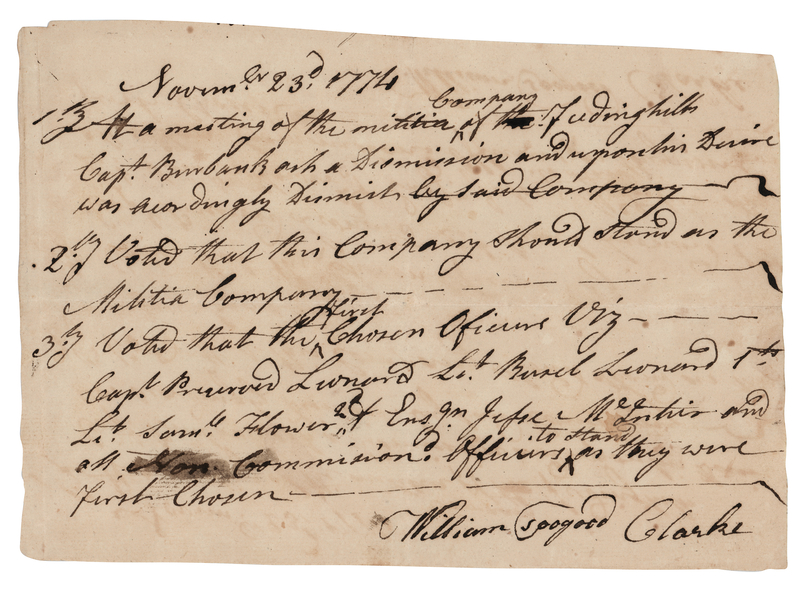 Novemᵇʳ 23ᵈ 1774
1ˡʸ At a meeting of the militia Company of the Feedinghills
Capᵗ Burbank ask a Dismission and upon his Desire
was acordingly Dismist by said Company
2ˡʸ Voted that this Company should stand as the
Militia Company
3ˡʸ Voted that the first Chosen Oficers Viz
Capᵗ Preserved Leonard Lᵗ Rusel Leonard 1ˢᵗ
Lᵗ Samˡˡ Flower 2ᵈ & Ensgn Jesse and
all Non Commisionᵈ Officers to stand as they were
First Chosen
William Clarke